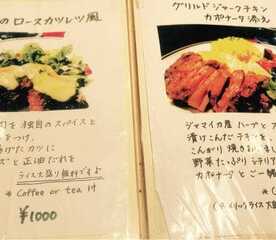 のロースカツレツ風
を独自のスパイスと
をつけ、
げたカツに
ズと正油だれを
ライス大盛り無料ですよ
* Coffee or tea 付
¥1000
グリルドジャークチキン
カポナータ添え
ジャマイカ産ハーブと
漬けこんだチキンを
こんがり焼き
野菜たっぷり
カポナータとご一緒
ライス大盛